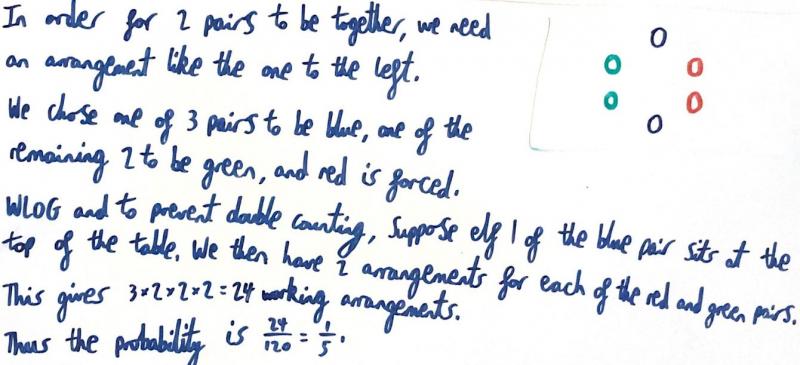 In order for 2 pairs to be together, we need
an arrangement like the one to the left.
We chose one of 3 pairs to be blue, one of the
remaining 2 to be green, and red is forced.
WLOG and to prevent double counting, suppose elf 1 of the blue pair sits at the
top of the table. We then have 2 arrangements for each of the red and green pairs.
This gives 3×2×2×2=24 working arrangements.
Thus the probability is 24/120 = 1/5.